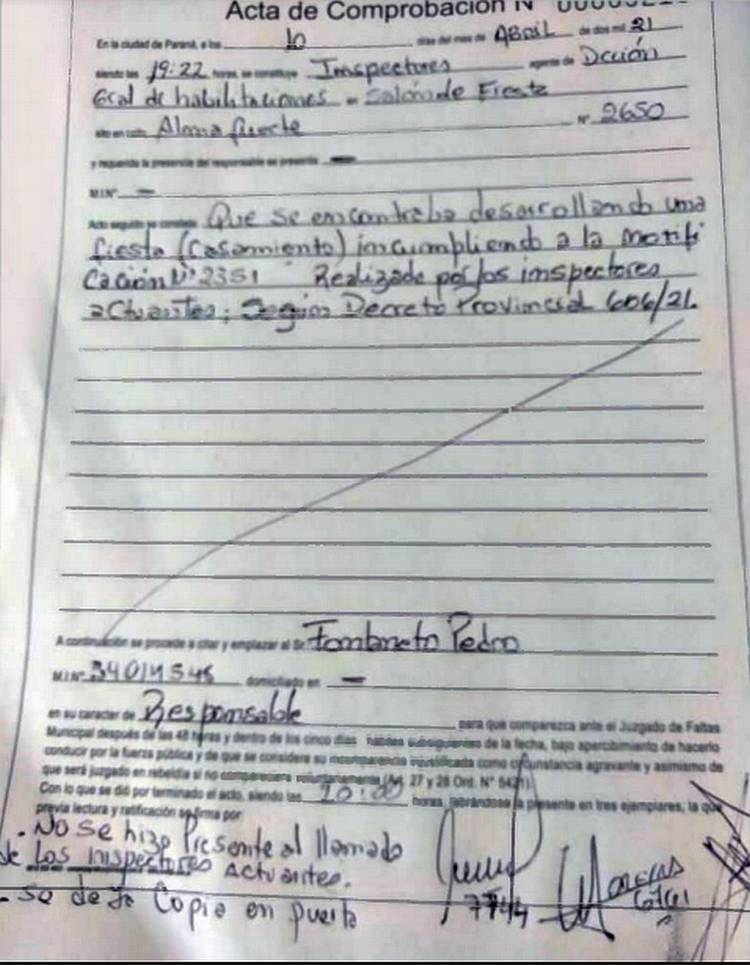 Acta de Comprobación N°
En la ciudad de Paraná, a los 10 días del mes de ABRIL de dos mil 21
siendo las 19:22 horas, se constituye Inspectores agente de Dcción
Gral de habilitaciones - Salón de Fiesta
sito en calle Almafuerte N° 2650
y requerida la presencia del responsable se presenta —
M.I.N° —
Acto seguido se constata Que se encontraba desarrollando una
fiesta (casamiento) incumpliendo a la notifi
cación N° 2351 Realizada por los inspectores
actuantes; Según Decreto Provincial 606/21.
A continuación se procede a citar y emplazar al Sr. Pedro
M.I.N° domiciliado en —
en su caracter de Responsable para que comparezca ante el Juzgado de Faltas
Municipal después de las 48 horas y dentro de los cinco días habiles subsiguientes de la fecha, bajo apercibimiento de hacerlo
conducir por la fuerza pública y de que se considere su incomparencia injustificada como circunstancia agravante y asimismo de
que será juzgado en rebeldía si no compareciera voluntariamente (Art. 27 y 28 Ord. N° 5421)
Con lo que se dió por terminado el acto, siendo las 20:00 horas, labrándose la presente en tres ejemplares, la que
previa lectura y ratificación se firma por
. No se hizo Presente al llamado
de los inspectores Actuantes.
- se dejo Copia en puerta
7744